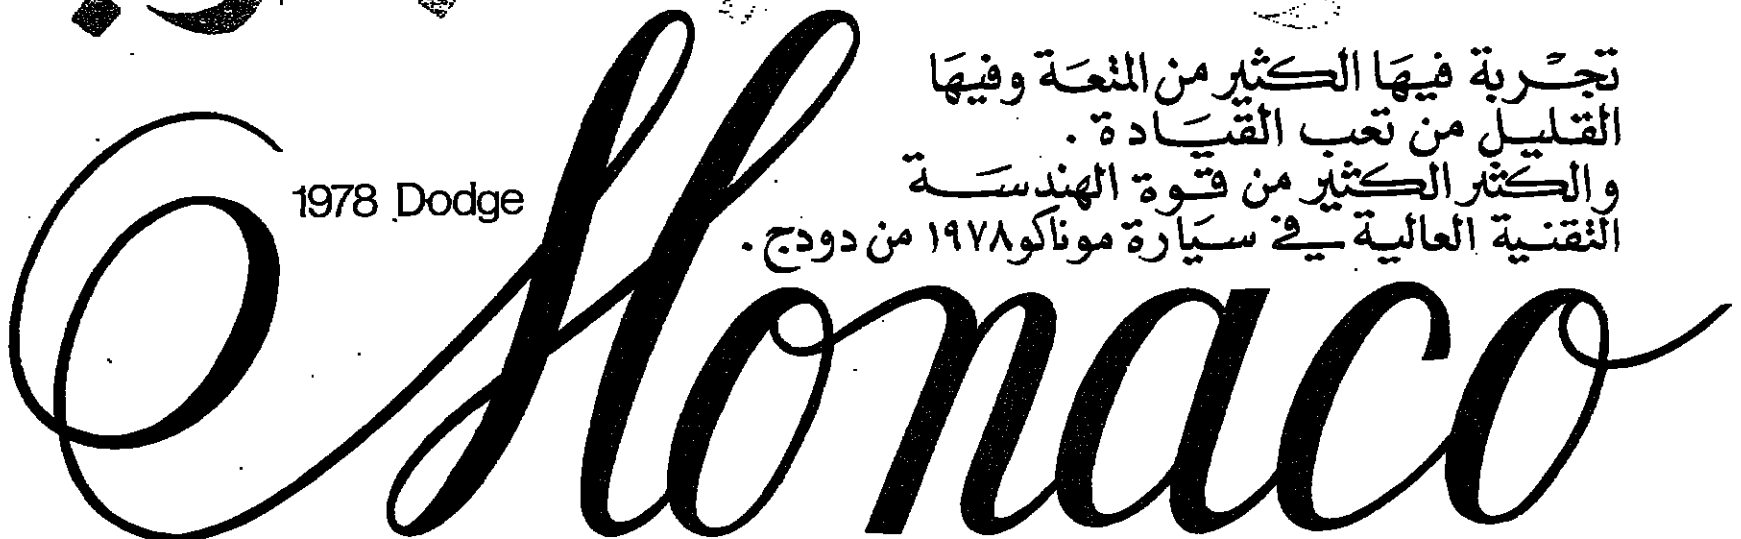 تجربة فيها الكثير من المتعة وفيها
القليل من تعب القيادة .
والكثير الكثير من قوة الهندسة
التقنية العالية في سيارة موناكو ١٩٧٨ من دودج .
1978 Dodge
Monaco